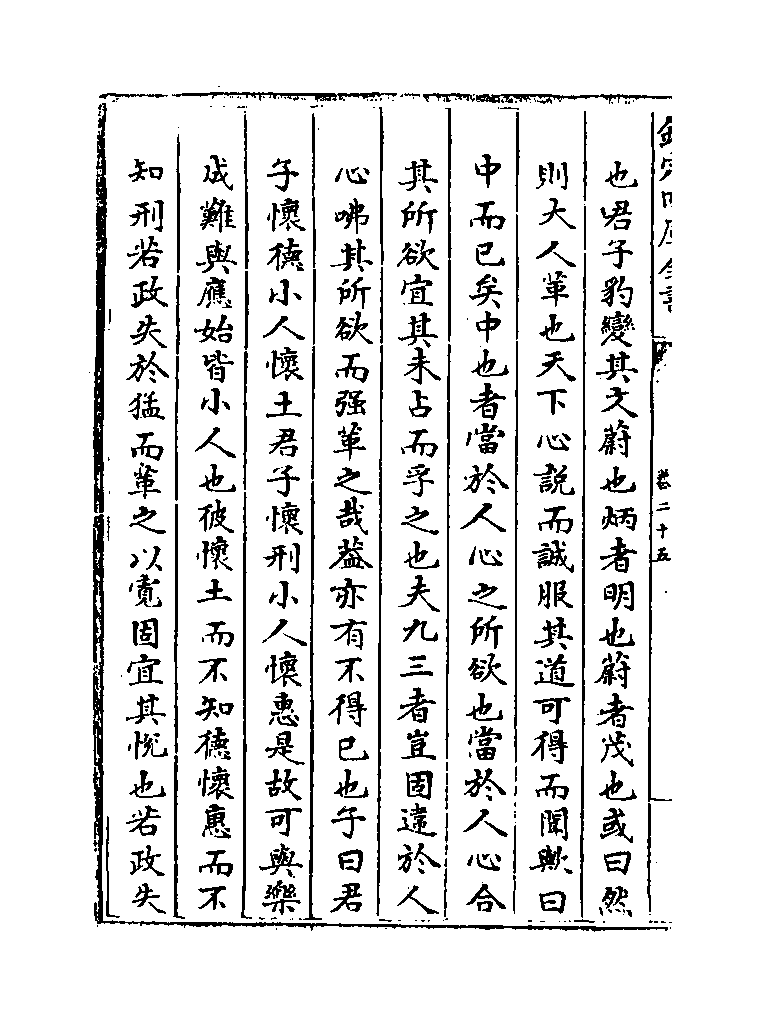 欽定四庫全書
卷二十五
也君子豹變其文蔚也炳者明也蔚者茂也或曰然
則大人革也天下心説而誠服其道可得而聞歟曰
中而已矣中也者當於人心之所欲也當於人心合
其所欲宜其未占而孚之也夫九三者豈固違於人
心咈其所欲而强革之哉葢亦有不得已也子曰君
子懷德小人懷土君子懷刑小人懷惠是故可與樂
成難與應始皆小人也彼懷土而不知德懷惠而不
知刑若政失於猛而革之以寛固宜其悅也若政失